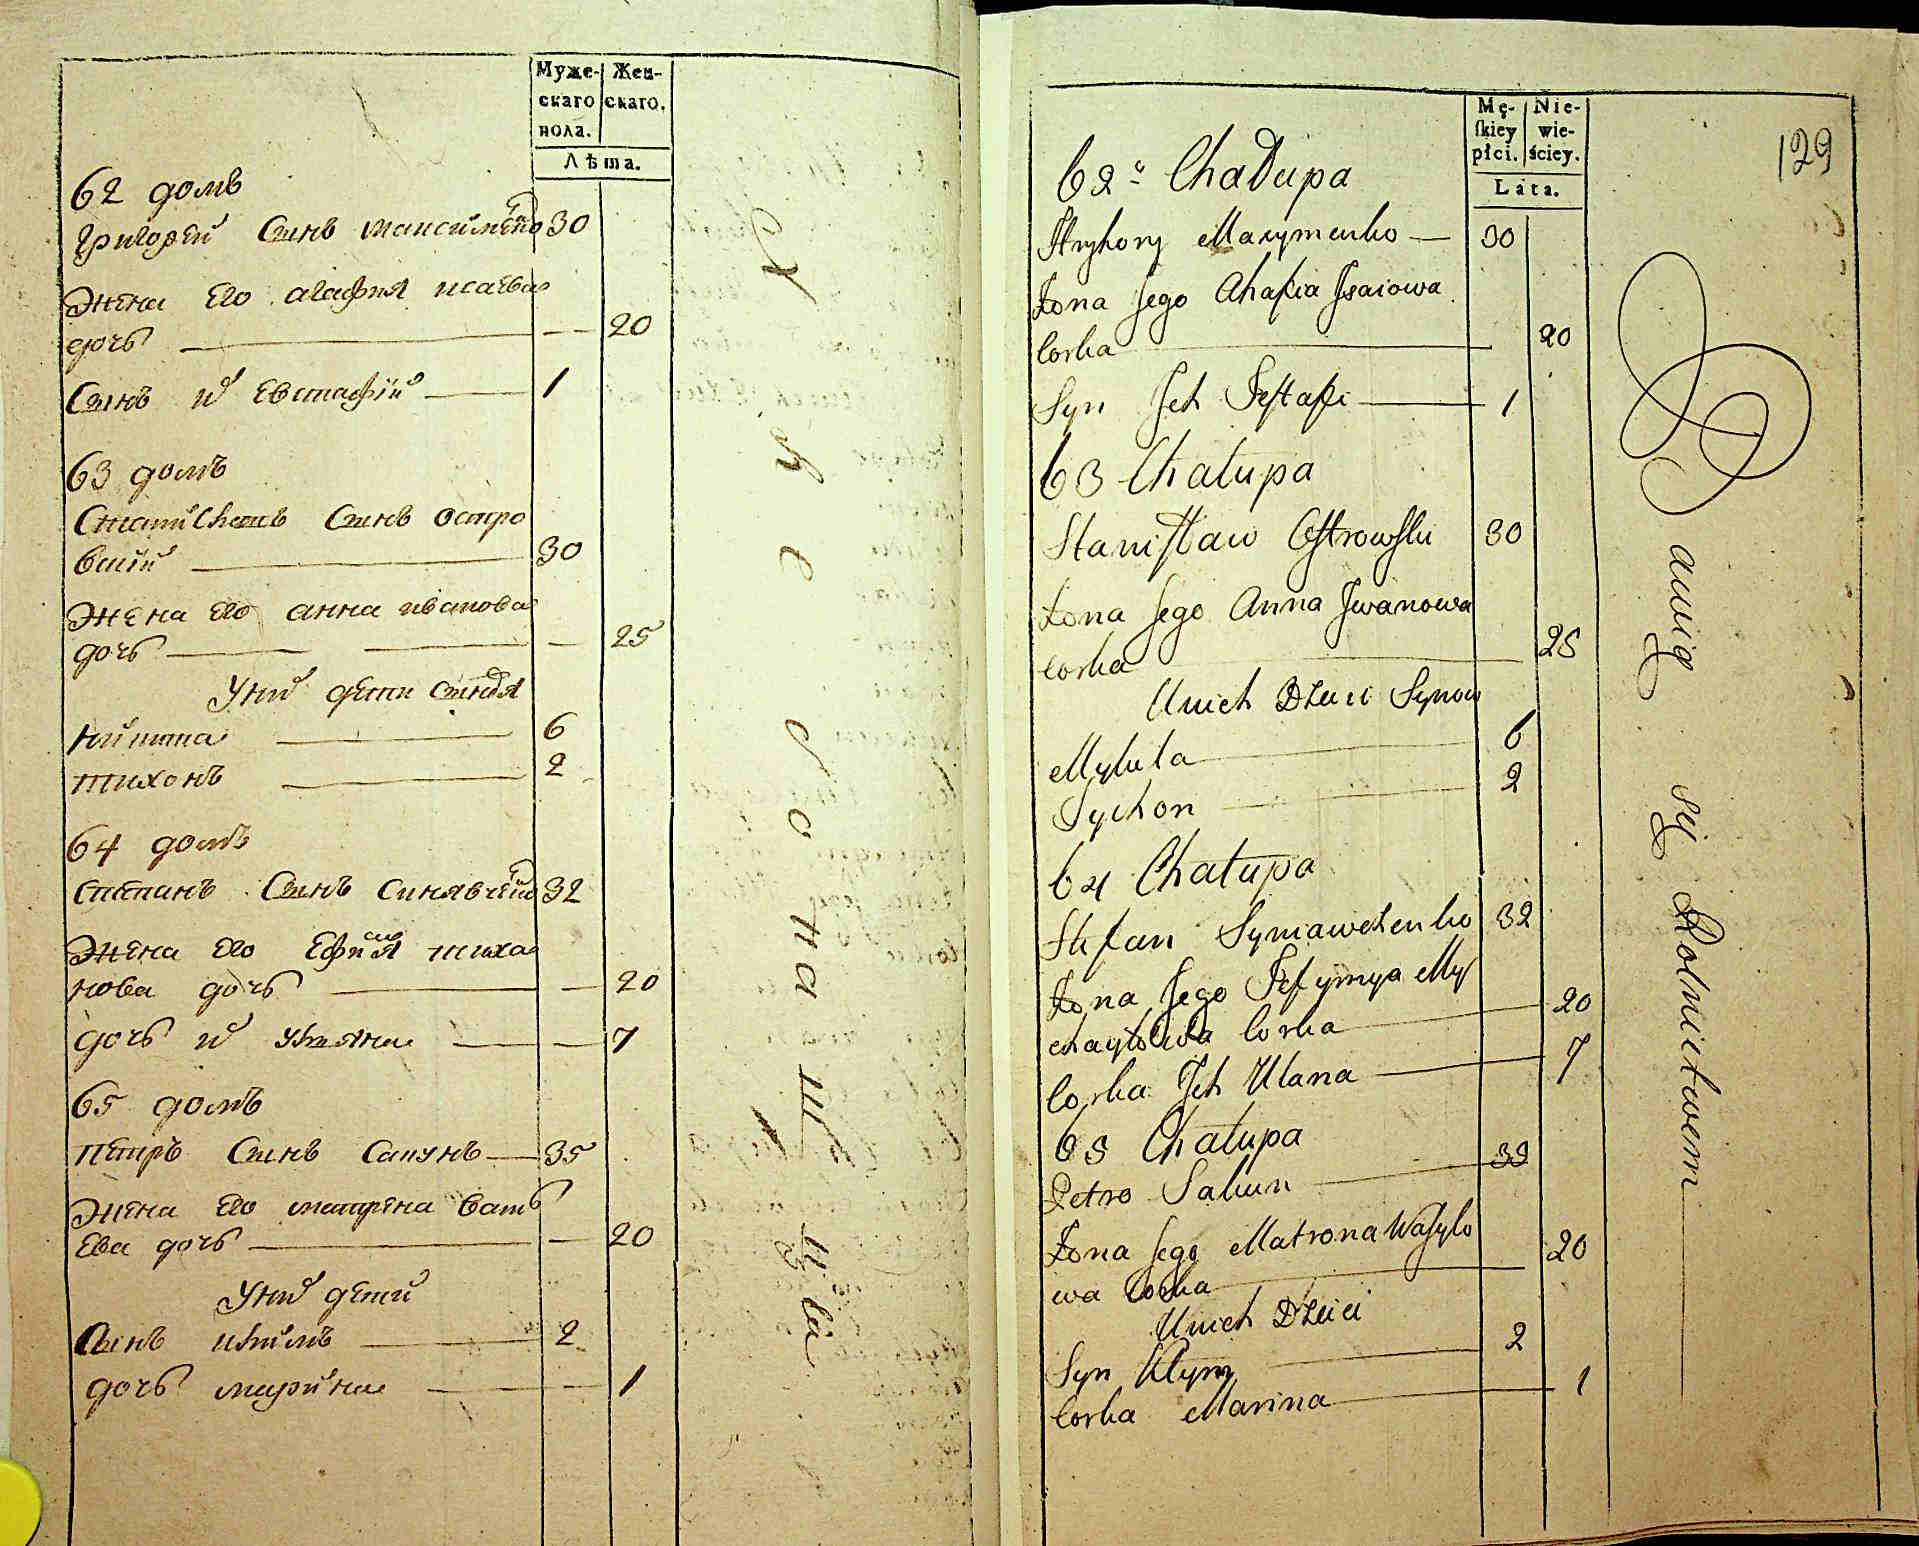 Муже-
скаго
пола.
Жен-
скаго.
Лѣта.
62 домъ
Григорей Сынъ максименко 30
Жена его агафия исаева
дочъ 20
Сынъ их Евстафiй 1
63 домъ
Сынъ остро
вский 30
Жена его анна иванова
дочъ 25
У них дети сыновя
никита 6
тихонъ 2
64 домъ
степанъ Сынъ синявченко 32
Жена его Ефимия миха
лова дочъ 20
дочъ их уляна 7
65 домъ
петръ Сынъ Сакунъ 35
Жена его матрена василь
Ева дочъ 20
У них дети
Сынъ климъ 2
дочъ марина 1
Mę-
skiey
płci.
Nie-
wie-
ściey.
Lata.
129
62° Chałupa
Hryhory Maxymenko 30
Żona Jego Ahafia Jsaiowa
Corka 20
Syn Jch Jestafi 1
63 Chałupa
Stanisław Ostrowski 30
Żona Jego Anna Jwanowa
Corka 25
Unich Dzieci Synow
Mykita 6
Tychon 2
64 Chałupa
Stefan Syniawczenko 32
Żona Jego Jefymya My
chayłowa Corka 20
Corka Jch Ulana 7
65 Chałupa
Petro Sakun 35
Żona Jego Matrona Wasylo
wa Corka 20
Unich Dzieci
Syn Klym 2
Corka Marina 1
Bawią się Rolnictwem